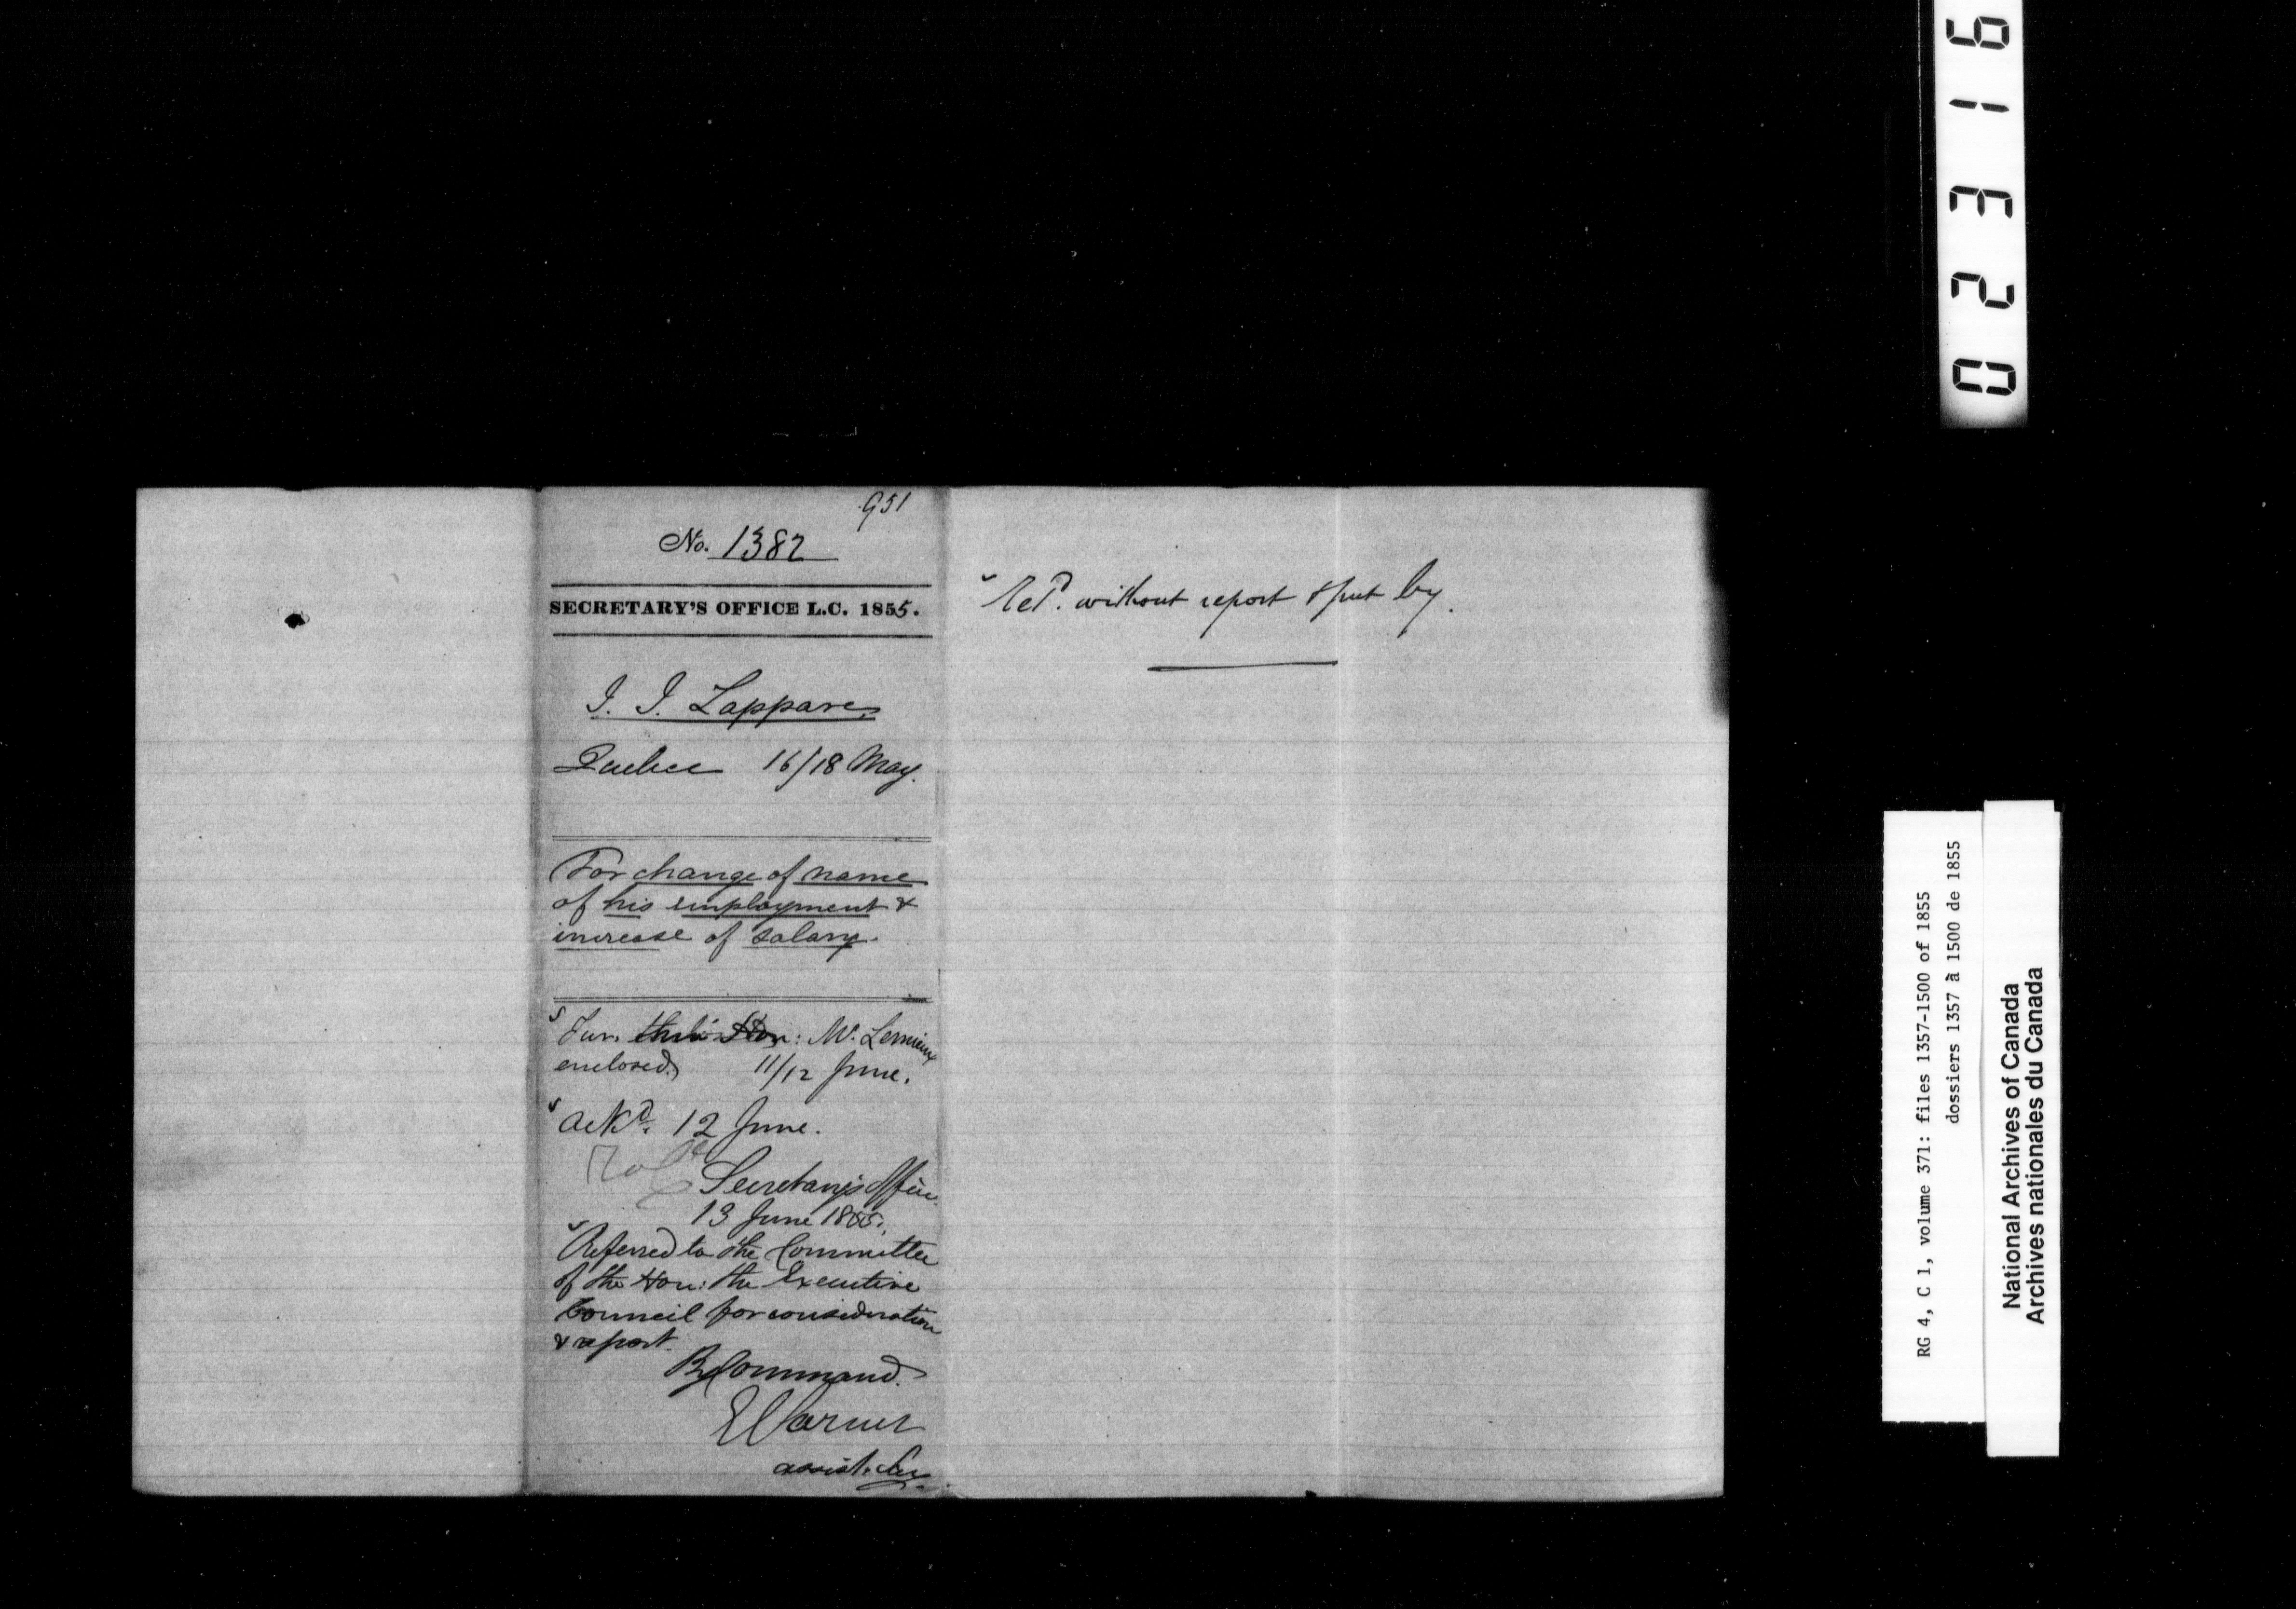 951
No. 1382
SECRETARY'S OFFICE L.C. 1855.
J. J. Lappare,
Quebec 16/18 May.
For change of name
of his employment &
increase of salary.
Fur. Hon: Mr. Lemieux
enclosed. 11/12 June.
Ackd. 12 June.
Secretary's Office
13 June 1855.
Referred to the Committee
of the Hon: the Executive
Council for consideration
& report.
By Command.
assist. Secy
Retd. without report & put by.
02316
RG 4, C 1, volume 371: files 1357-1500 of 1855
dossiers 1357 à 1500 de 1855
National Archives of Canada
Archives nationales du Canada